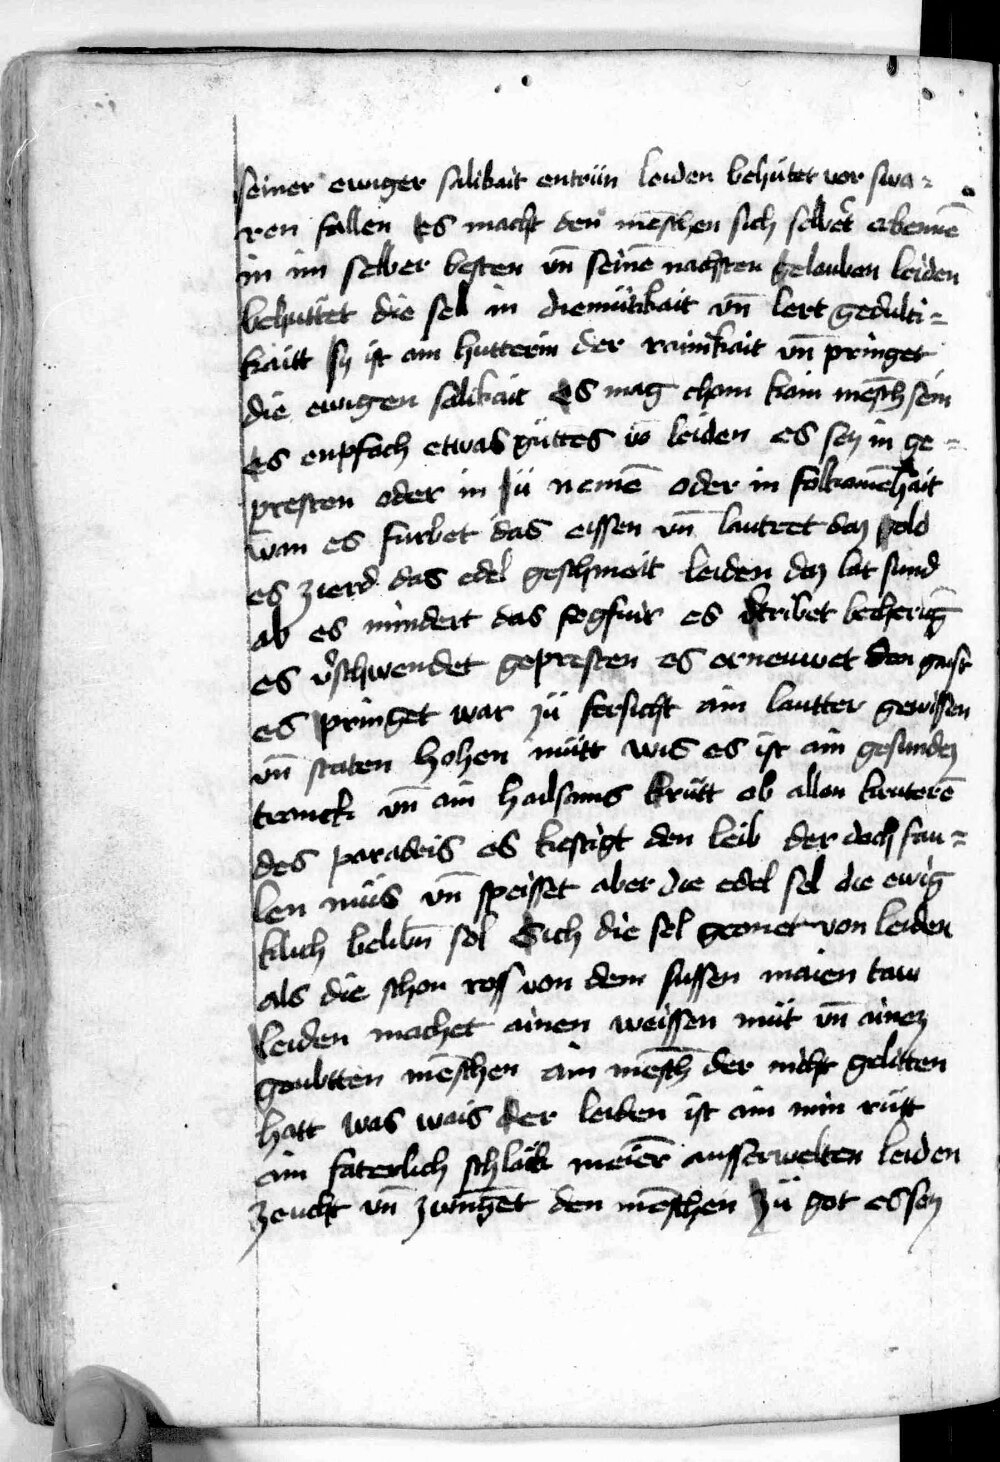 seiner ewiger salikait entrün leiden behütet vor swa=
ren fallen es macht den mēschen sich selbēr erkennē
in im selber besten vn̄ seinē nachsten gelauben leiden
behüttet die sell in diemütikait vn̄ lert gedulti=
kaitt sy ist ain hutterin der rainikait vn̄ pringet
die ewigen salikait es mag cham kain mēsch sein
es enpfach etwas güttes vō leiden es sey in ge=
presten oder in zü nemē oder in folkumēhait
wan es furbet das eissen vn̄ lautret daz gold
es zierd das edel geschmeit leiden daz lat sund
ab es mindert das fegfuir es vtribet becherūg
es v̓schwendet gepresten es ernewet den gaist
es pringet war zü fersicht ain lautter gewissen
vn̄ staten hohen mütt wis es ist ain gesundez
tranck vn̄ ain hailsams krütt ob allen kruterē
des paradeis es kestigt den leib der doch fau=
len müs vn̄ speisset aber die edel sel die ewig
klich belibn̄ sol Sich die sel geonet von leiden
als die schon ross von dem sussen maien taw
leiden machet ainen weissen müt vn̄ ainez
geubtten mēschen ain mēsch der nicht gelitten
hatt was wais der leiden ist ain min rütt
ain faterlich schlak meiēr ausserwelten leiden
zeucht vn̄ zwinget den mēschen zü got es sey